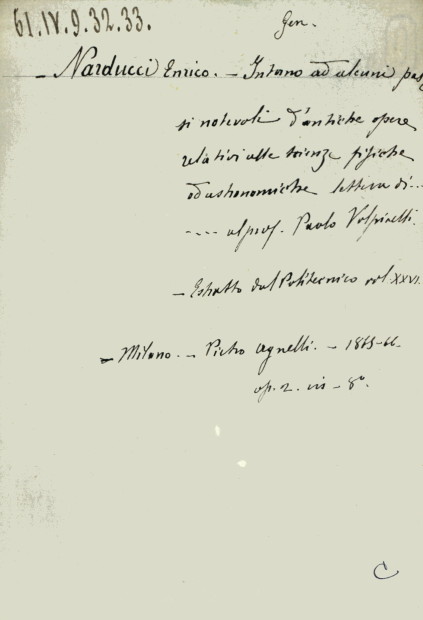 61.IV.9.32.33.
Gen.
- Narducci Enrico. - Intorno ad alcuni pas
si notevoli d'antiche opere
relativi alle scienze fisiche
ed astronomiche lettera di...
.... al prof. Paolo Volpicelli.
- Estratto dal Politecnico vol. XXVI.
- Milano. - Pietro Agnelli. - 1865-66.
op. 2. in - 8º.
C